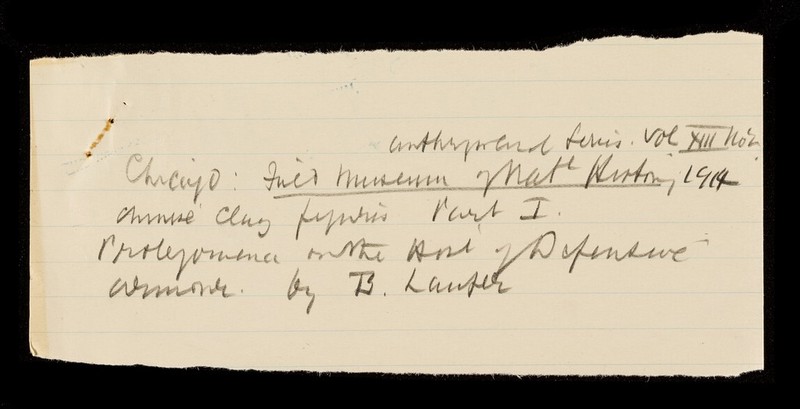 Anthropological Series. Vol XIII No 2
Chicago: Field Museum of Natl History, 1914
Chinese Clay figures Part I.
Prolegomena on the Hist of Defensive
armour. by B. Laufer